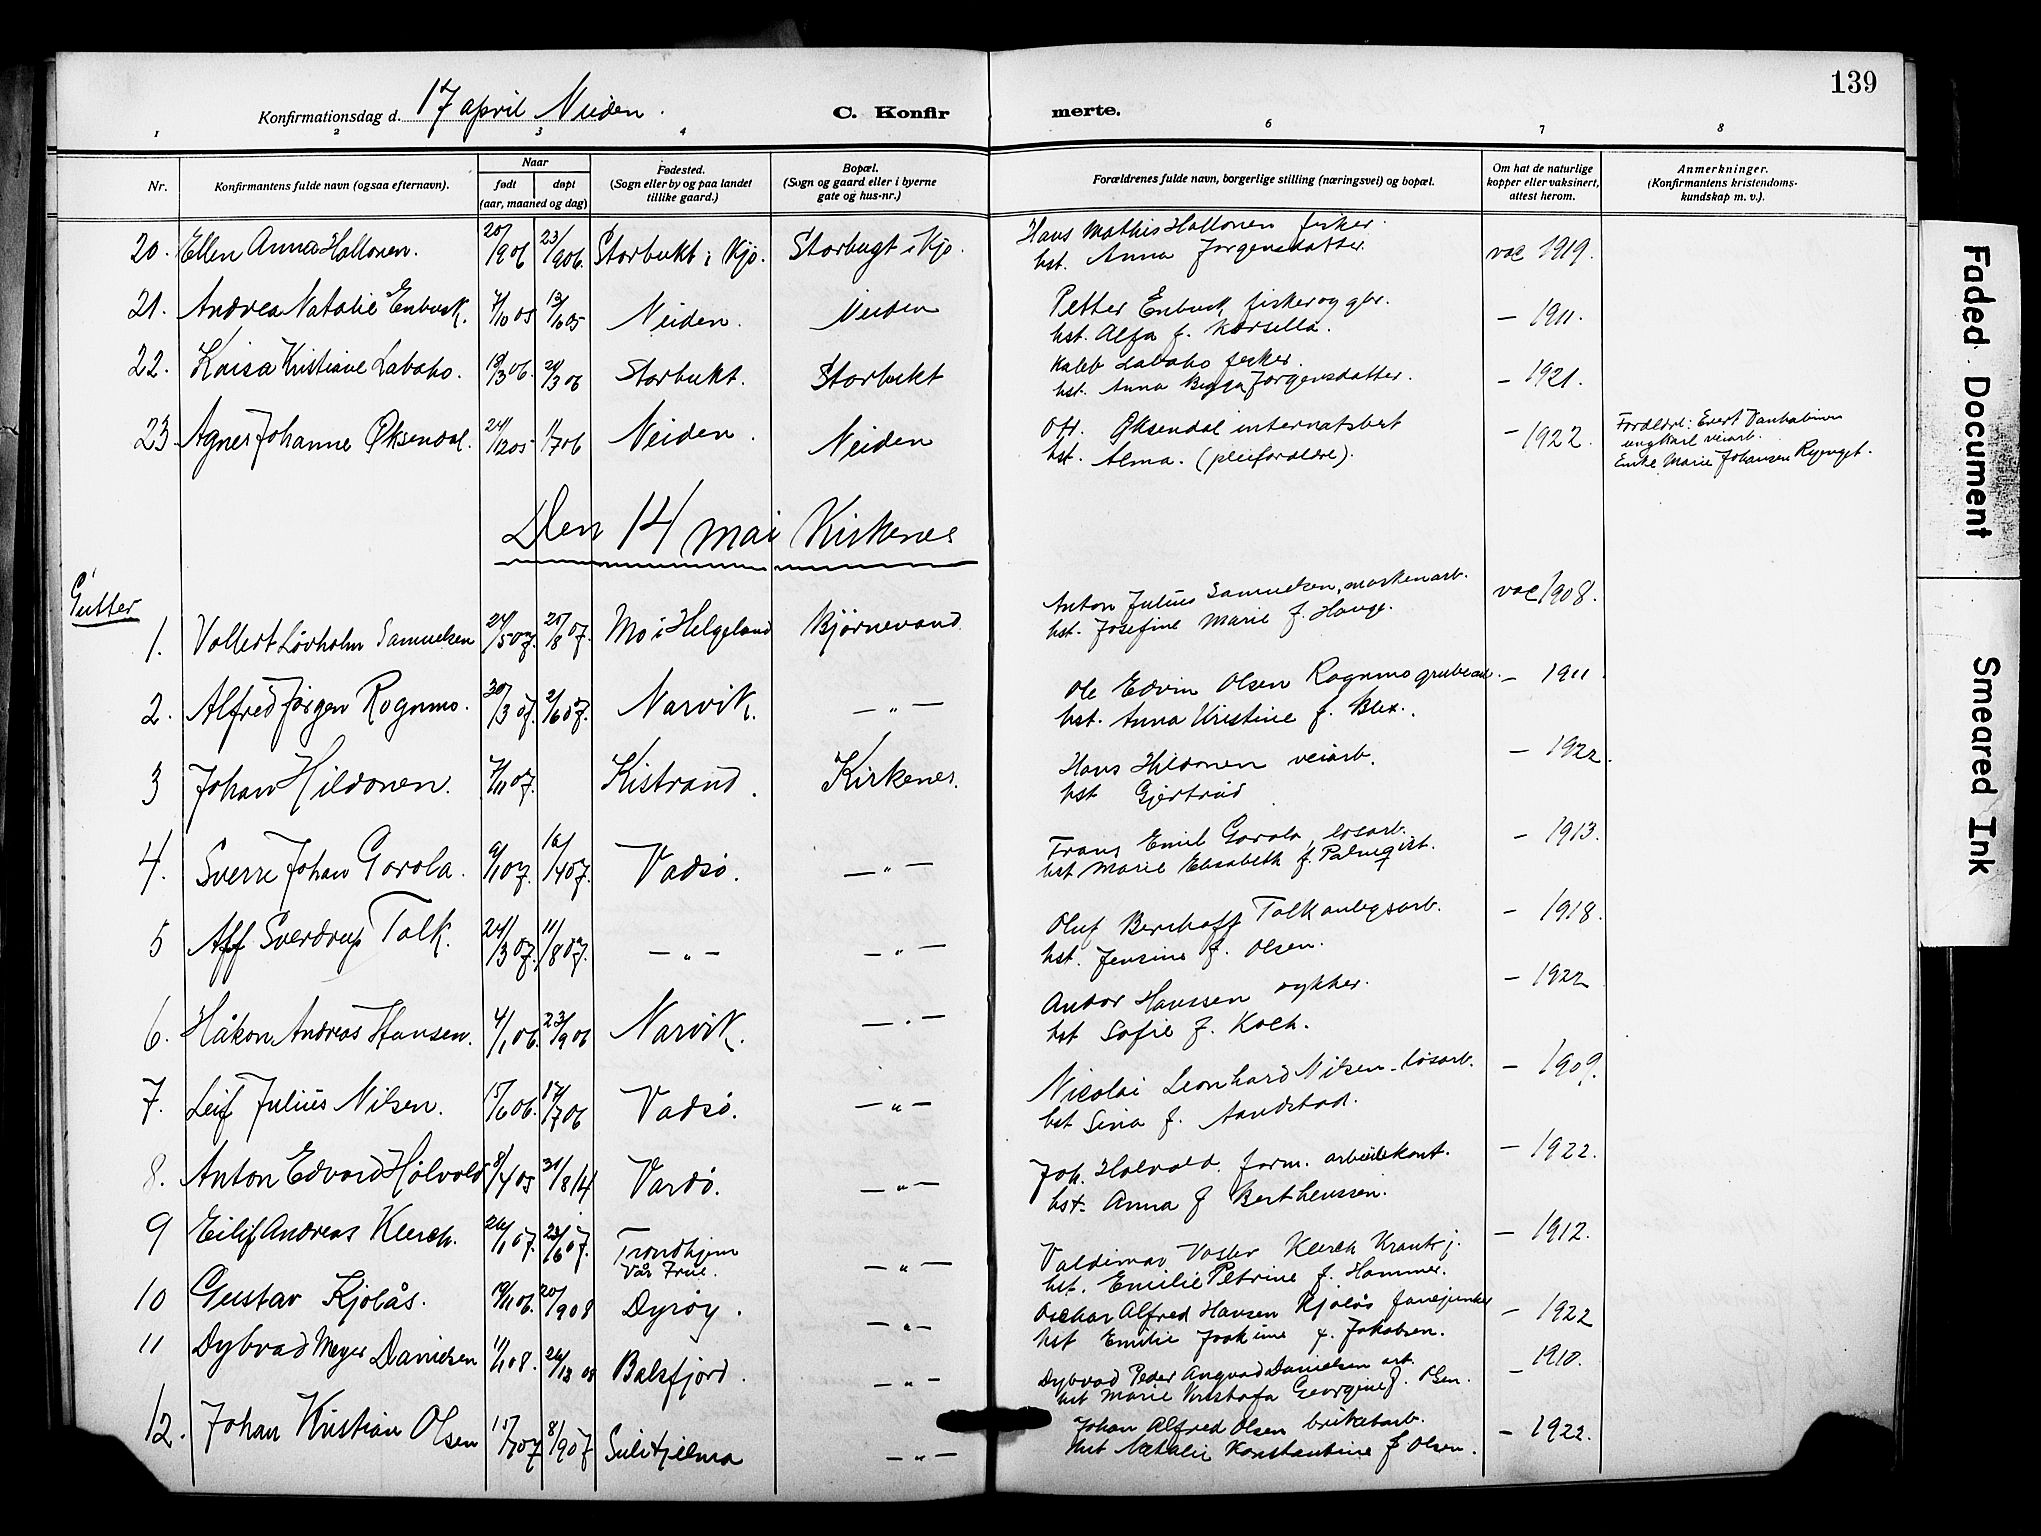 139
Konfirmationsdag d. 17 april Neiden.
C. Konfirmerte.
1 2 3 4 6 7 8
Nr. Konfirmantens fulde navn (ogsaa efternavn). Naar født døpt (aar, maaned og dag) Fødested. (Sogn eller by og paa landet tillike gaard.) Bopæl. (Sogn og gaard eller i byerne gate og hus-nr.) Forældrenes fulde navn, borgerlige stilling (næringsvei) og bopæl. Om hat de naturlige kopper eller vaksinert, attest herom. Anmerkninger. (Konfirmantens kristendoms-kundskap m. v.).
20. Ellen Anna Hallonen. 20/9 06 23/9 06. Storbukt i Kjø. Storbugt i Kjø. Hans Mathis Hallonen fisker.
hst. Anna Jørgensdatter vac 1919.
21. Andrea Natalie Enbusk. 7/10 05 13/10 05 Neiden. Neiden Petter Enbusk fisker og gbr.
hst. Alfa f. Karsella. — 1911.
22. Kaisa Kristiane Labaho. 19/3 06. 20/3 06 Storbukt. Storbukt Kaleb Labaho fisker.
hst. Anna Jørgensdatter. — 1921.
23 Agnes Johanne Øksendal. 24/12 05 1/7 06 Neiden. Neiden Øksendal internatsbest
hst. Alma. (pleiforældre). — 1922. Forældre: Evert
ungkarl veiarb.
Enke Marie Johansen
Den 14 mai Kirkenes
Gutter
1. Vollert Løvholm Samuelsen 24/5 07. 25/8 07. Mo i Helgeland Bjørnevand Anton Julius Samuelsen, maskenarb.
hst. Josefine Marie f. Hauge. vac 1908.
2. Alfred Jørgen Rognmo. 30/3 07. 2/6 07. Narvik. — „ — Ole Edvin Olsen Rognmo grubearb. — 1911
hst. Anna Kristine f. Blix.
3 Johan Hildonen. 7/11 07. Kistrand. Kirkenes. Hans Hildonen veiarb. — 1922.
hst Gjertrud
4. Sverre Johan Gorola. 9/1 07. 16/4 07. Vadsø. — „ — Frans Emil Gorola, løsarb. — 1913.
hst Marie Elisabeth f. Palmqvist.
5 Aff Sverdrup Falk. 24/3 07. 11/8 07. — „ — — „ — Oluf Berchoff Falk anlegsarb. — 1918.
hst. Jensine f. Olsen.
6. Håkon Andreas Hansen. 4/1 06. 23/9 06 Narvik. — „ — Andor Hanssen dykker. — 1922
hst Sofie f. Koch.
7. Leif Julius Nilsen. 15/6 06. 17/7 06 Vadsø. — „ — Nicolai Leonhard Nilsen. løsarb. — 1909.
hst Sina f. Sandstad.
8. Anton Edvard Holvold 8/4 05 31/8 14 Vardø. — „ — Joh. Holvold. form. arbeidskont. — 1922.
hst. Anna f Berthenssen.
9 Eilif Andreas Klerck. 26/1 07. 23/6 07. Trondhjem
Vår Frue. — „ — Valdimar Klerck — 1912.
hst. Emilie Petrine f. Hammer.
10 Gustav Kjølås. 19/11 06. 20/9 08 Dyrøy. — „ — Oschar Alfred Hansen Kjølås fanejunker — 1922
hst Emilie Joakime f. Jakobsen.
11 Dybvad Meyer Danielsen 11/1 08. 26/12 08 Balsfjord. — „ — Dybvad Peder Angvad Danielsen arb. — 1910.
hst Marie Kristofa Georgine f. Olsen.
12. Johan Kristian Olsen 15/7 07 8/9 07 Sulitjelma — „ — Johan Alfred Olsen briketarb. — 1922.
hst Natalie Konstantine f Olsen.
Faded Document
Smeared Ink